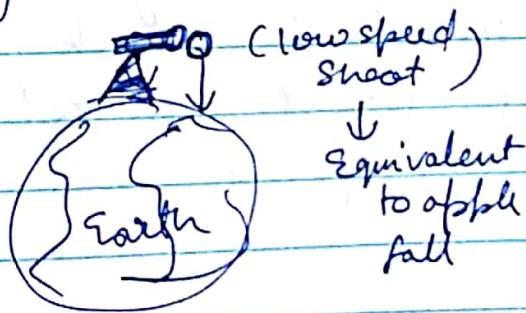 (low speed
shoot)
Equivalent
to apple
fall
Earth